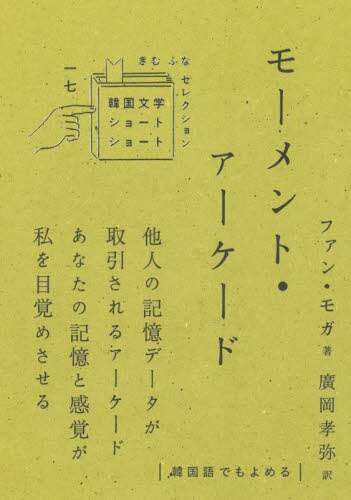 モーメント・
アーケード
ファン・モガ 著 廣岡孝弥 訳
きむ ふな セレクション
韓国文学
ショート
ショート
一七
他人の記憶データが
取引されるアーケード
あなたの記憶と感覚が
私を目覚めさせる
韓国語でもよめる